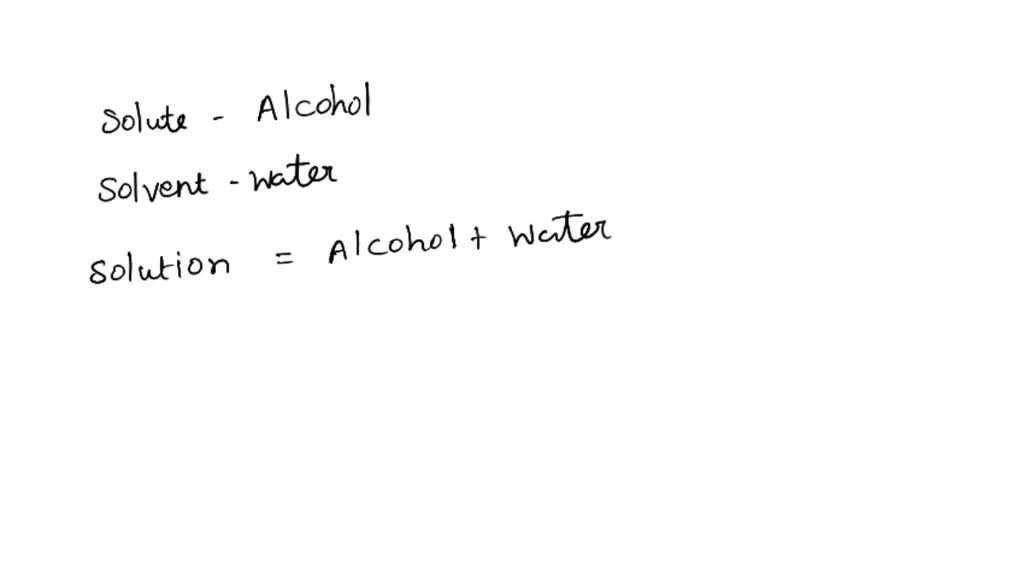 Solute - Alcohol
Solvent - Water
Solution = Alcohol + Water